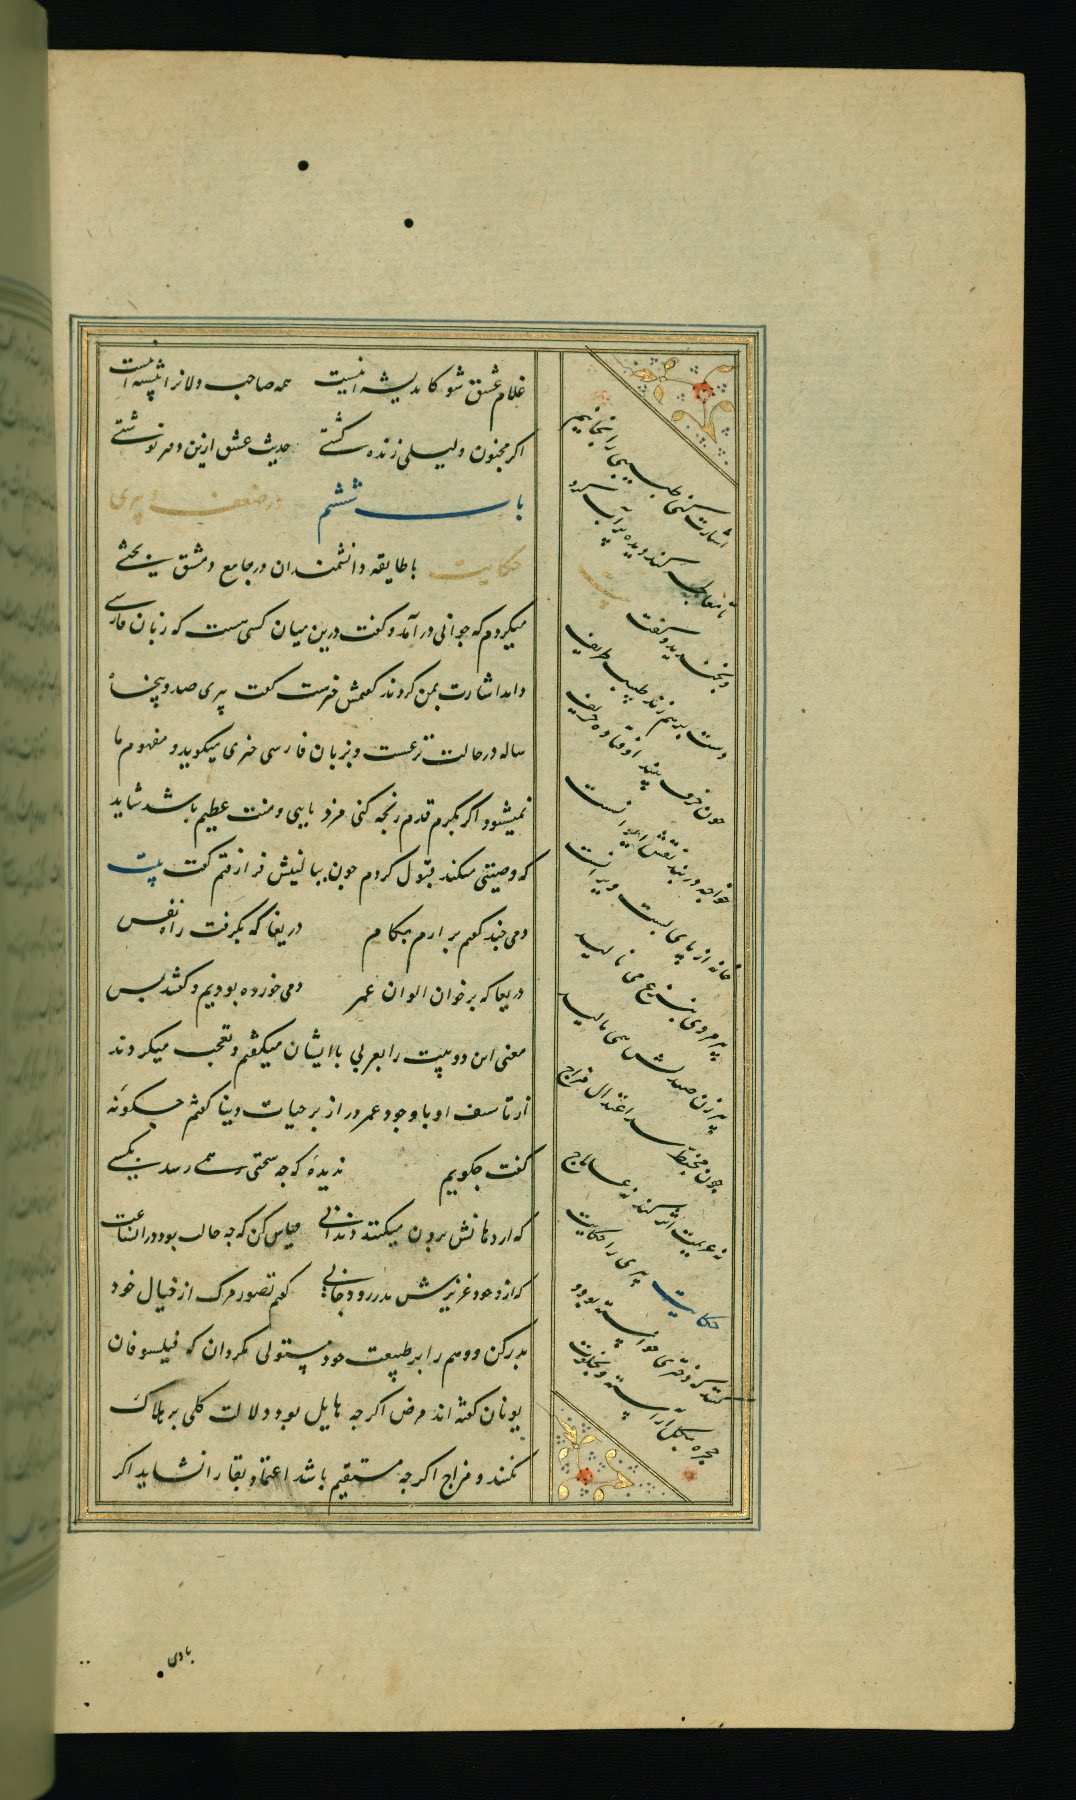 غلام عشق شو کاندیشه اینست همه صاحب دلانرا پیشه اینست
اکر مجنون و لیلی زنده کشتی حدیث عشق ازین دفتر نوشتی
باب ششم در ضعف و پیری
حکایت با طایفه دانشمندان در جامع دمشق بحثی
میکردم که جوانی در آمد و کفت درین میان کسی هست که زبان فارسی
داند اشارت بمن کردند کفتمش خیرست کفت پیری صد و پنجاه
ساله در حالت نزعست و بزبان فارسی چیزی میکوید و مفهوم ما
نمیشود اکر بکرم قدم رنجه کنی مزد یابی و منت عظیم باشد شاید
که وصیتی میکند قبول کردم چون ببالینش فراز رفتم کفت بیت
دمی چند کفتم بر آرم بکام دریغا که بکرفت راه نفس
دریغا که بر خوان الوان عمر دمی خورده بودیم و کفتند بس
معنی این دو بیت را بعربی با ایشان میکفتم و تعجب میکردند
از تاسف او با وجود عمر دراز بر حیات دنیا کفتم چکونه
کفت چکویم ندیدهٔ که چه سختی همی رسد بکسی
که از دهانش برون میکنند دندانی قیاس کن که چه حالت بود در آن ساعت
که از وجود عزیزش بدر رود جانی کفتم تصور مرک از خیال خود
بدر کن و وهم را بر طبیعت خود مستولی مکردان که فیلسوفان
یونان کفته اند مرض اکرچه هایل بود دلالت کلی بر هلاک
نکند و مزاج اکرچه مستقیم باشد اعتماد بقا را نشاید اکر
اشارت کنی طبیبی را بخوانیم
تا معالجه کند دیده بر آب کرد
و بخندید و کفت بیت
دست بر هم زند طبیب ظریف
چون خرف بیند اوفتاده حریف
خواجه در بند نقش ایوانست
خانه از پای بست ویرانست
پیر مردی بنزع می نالید
پیر زن صندلش همی مالید
چون مخبط شد اعتدال مزاج
نه عزیمت اثر کند نه علاج
حکایت پیری را حکایت
کنند که دختری خواسته بود و
حجره بکل آراسته و بخلوت
بادی